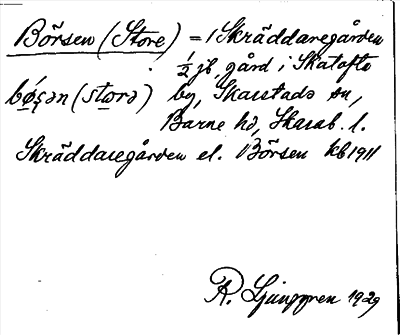 Börsen (Store) = 1 Skräddaregården
1/2 jb, gård i Skatofta
(storə) by, Skarstads sn,
Barne hd, Skarab. l.
Skräddaregården el. Börsen kb 1911
R. Ljunggren 1929